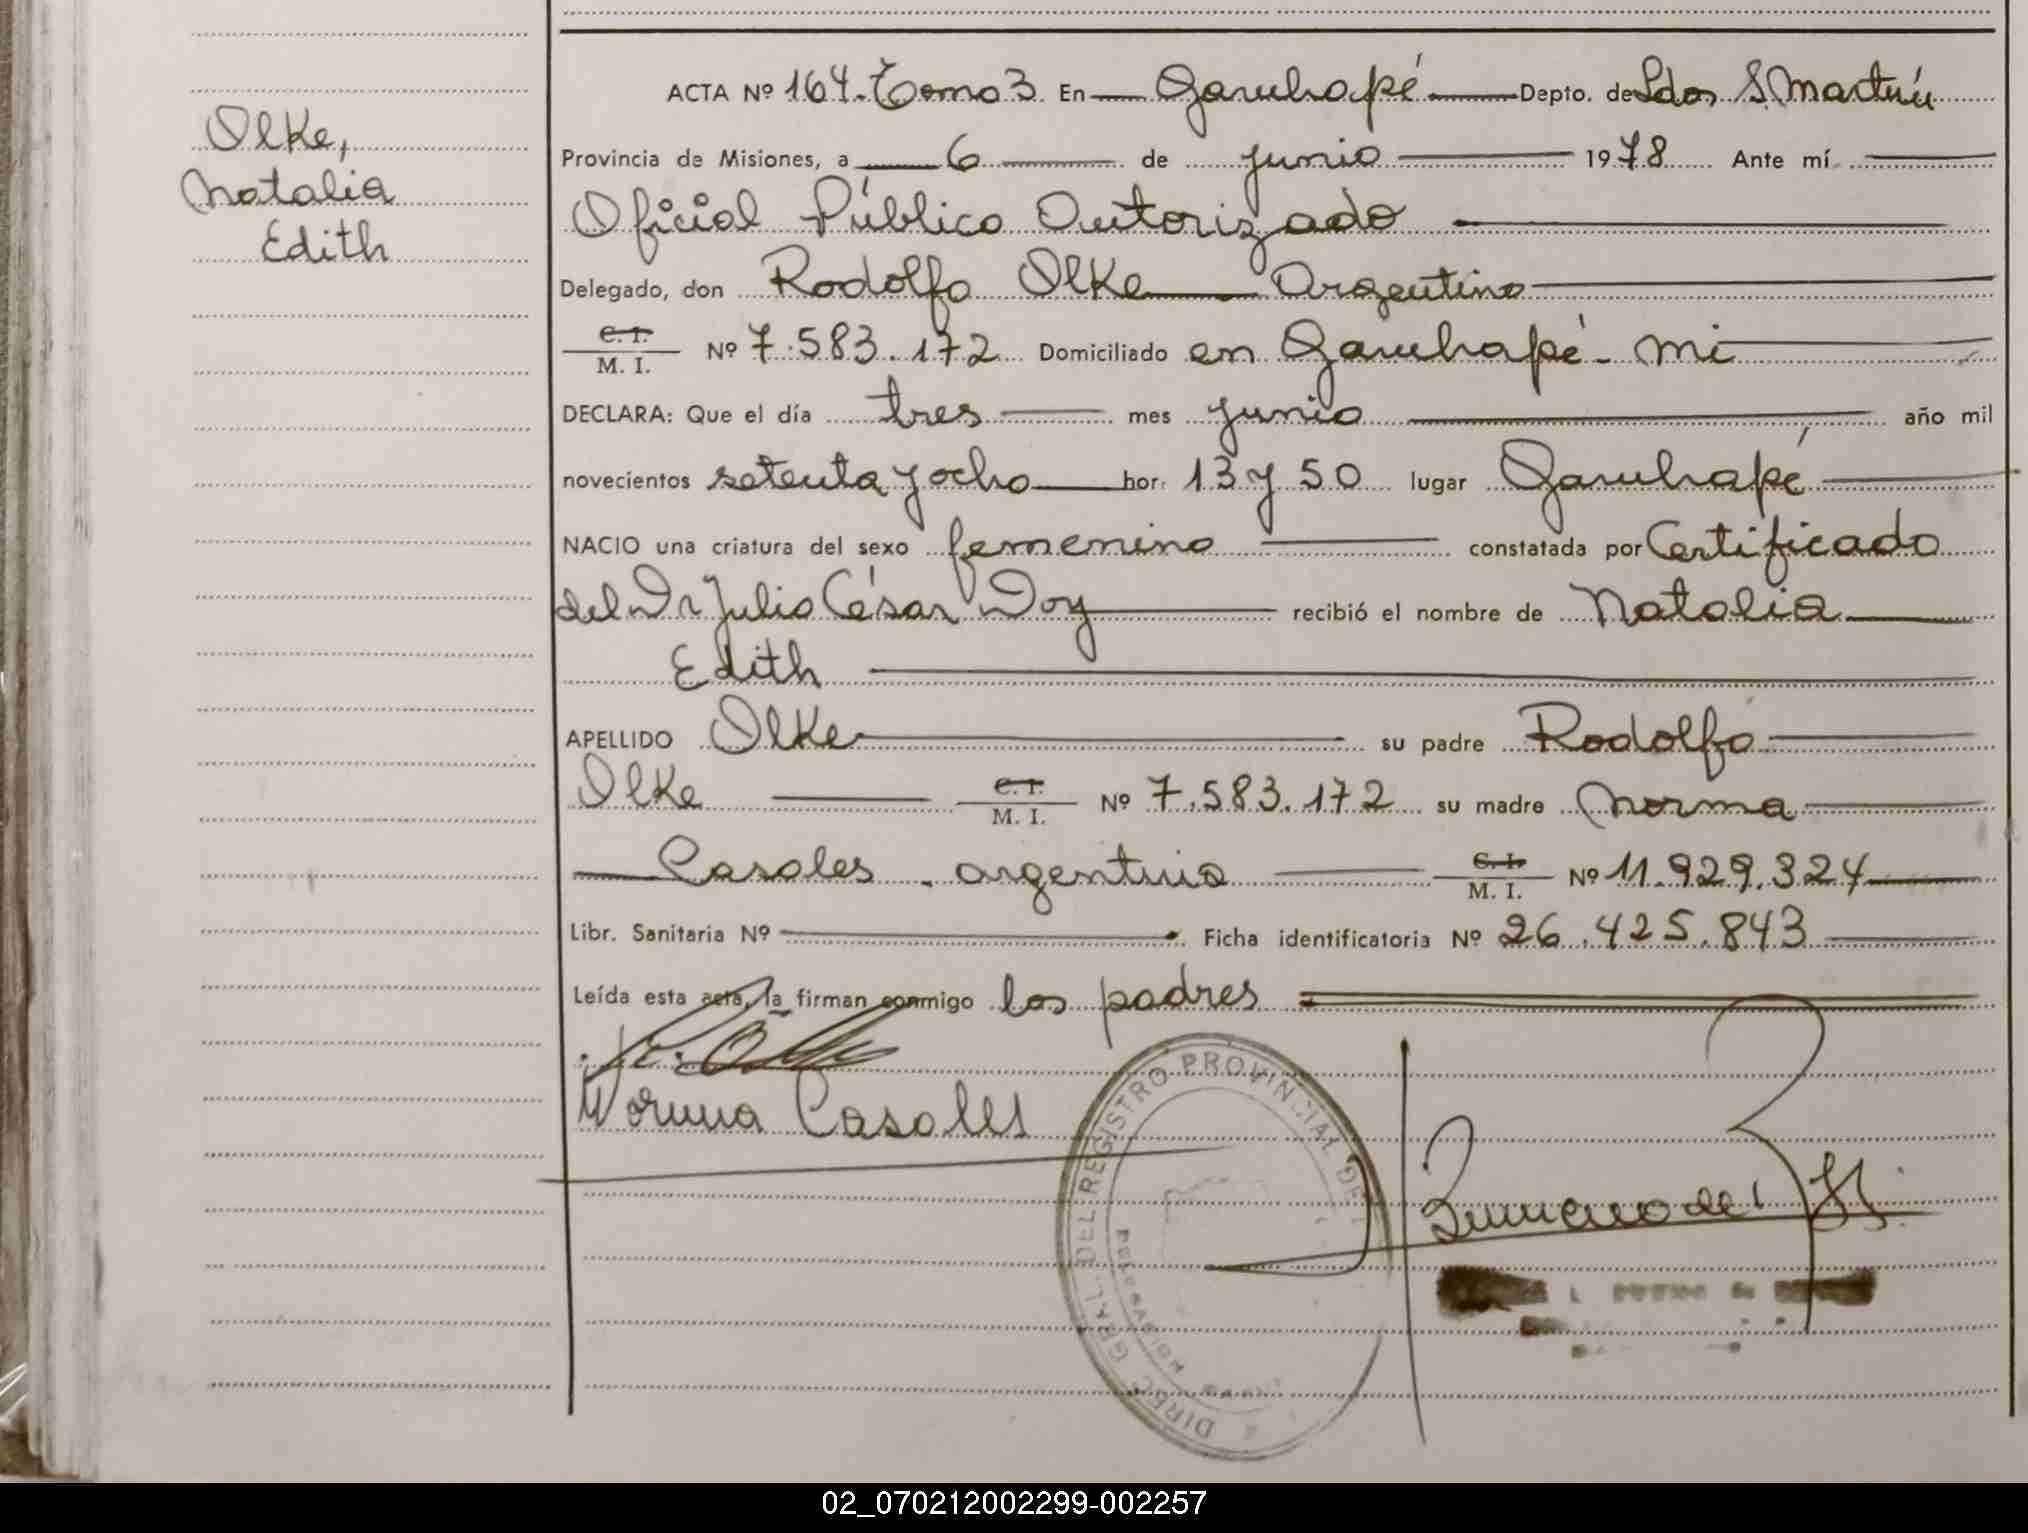 Olke,
Natalia
Edith
ACTA Nº 164. Tomo 3 En Garuhapé Depto. de Ldor S. Martín
Provincia de Misiones, a 6 de junio 1978 Ante mí
Oficial Público Autorizado
Delegado, don Rodolfo Olke Argentino
C. I.
M. I. Nº 7.583.172 Domiciliado en Garuhapé - Mi
DECLARA: Que el día tres mes junio año mil
novecientos setenta y ocho hor. 13 y 50 lugar Garuhapé
NACIO una criatura del sexo femenino constatada por Certificado
del Dr Julio César Doy recibió el nombre de Natalia
Edith
APELLIDO Olke su padre Rodolfo
Olke C. I. M. I. Nº 7.583.172 su madre Norma
Casales. argentina C. I. M. I. Nº 11.929.324
Libr. Sanitaria Nº Ficha identificatoria Nº 26.425.843
Leída esta acta, la firman conmigo los padres
Norma Casales
DIREC. GRAL. DEL REGISTRO PROVINCIAL DE
02_070212002299-002257